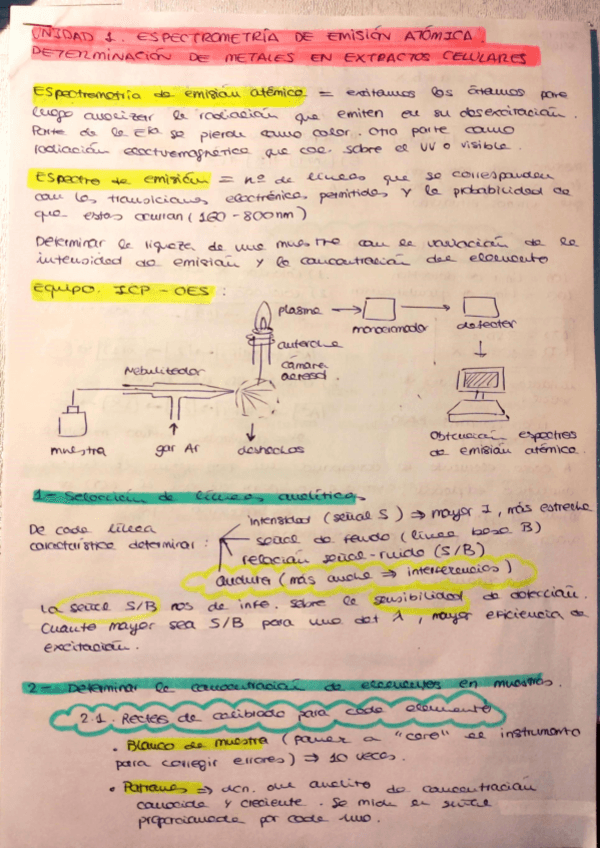 UNIDAD 1. ESPECTROMETRÍA DE EMISIÓN ATÓMICA.
DETERMINACIÓN DE METALES EN EXTRACTOS CELULARES
Espectrometría de emisión atómica = excitamos los átomos para
luego analizar la radiación que emiten en su desexcitación.
Parte de la Eía se pierde como calor. Otra parte como
radiación electromagnética que cae sobre el UV o visible.
Espectro de emisión = nº de líneas que se corresponden
con las transiciones electrónicas permitidas y la probabilidad de
que estas ocurran (160-800nm)
Determinar la de una muestra con la variación de la
intensidad de emisión y la concentración del elemento
Equipo. ICP-OES:
plasma
monocromador
detector
antorcha
cámara
aerosol
Nebulizador
muestra
gas Ar
deshechos
Obtención espectros
de emisión atómica.
1- Selección de líneas analíticas
De cada línea
característica determinar:
intensidad (señal S) ⇒ mayor I, más estrecha
señal de fondo (línea base B)
relación señal-ruido (S/B)
anchura (más ancha ⇒ interferencias)
La señal S/B nos da info. sobre la sensibilidad de detección.
Cuanto mayor sea S/B para una det λ, mayor eficiencia de
excitación.
2- Determinar la concentración de elementos en muestras.
2.1. Rectas de calibrado para cada elemento
• Blanco de muestra (poner a "cero" el instrumento
para corregir errores) ⇒ 10 veces.
• Patrones ⇒ dcn. del analito de concentración
conocida y creciente. Se mide la señal
proporcionada por cada uno.